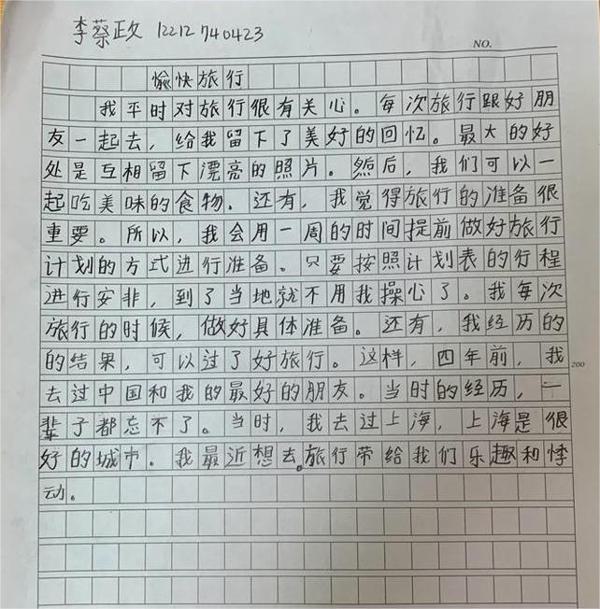 李蔡政 12212740423
NO.
愉快旅行
我平时对旅行很有关心。每次旅行跟好朋
友一起去，给我留下了美好的回忆。最大的好
处是互相留下漂亮的照片。然后，我们可以一
起吃美味的食物。还有，我觉得旅行的准备很
重要。所以，我会用一周的时间提前做好旅行
计划的方式进行准备。只要按照计划表的行程
进行安非，到了当地就不用我操心了。我每次
旅行的时候，做好具体准备。还有，我经历的
的结果，可以过了好旅行。这样，四年前，我
200
去过中国和我的最好的朋友。当时的经历，一
辈子都忘不了。当时，我去过上海，上海是很
好的城市。我最近想去。旅行带给我们乐趣和悸
动。